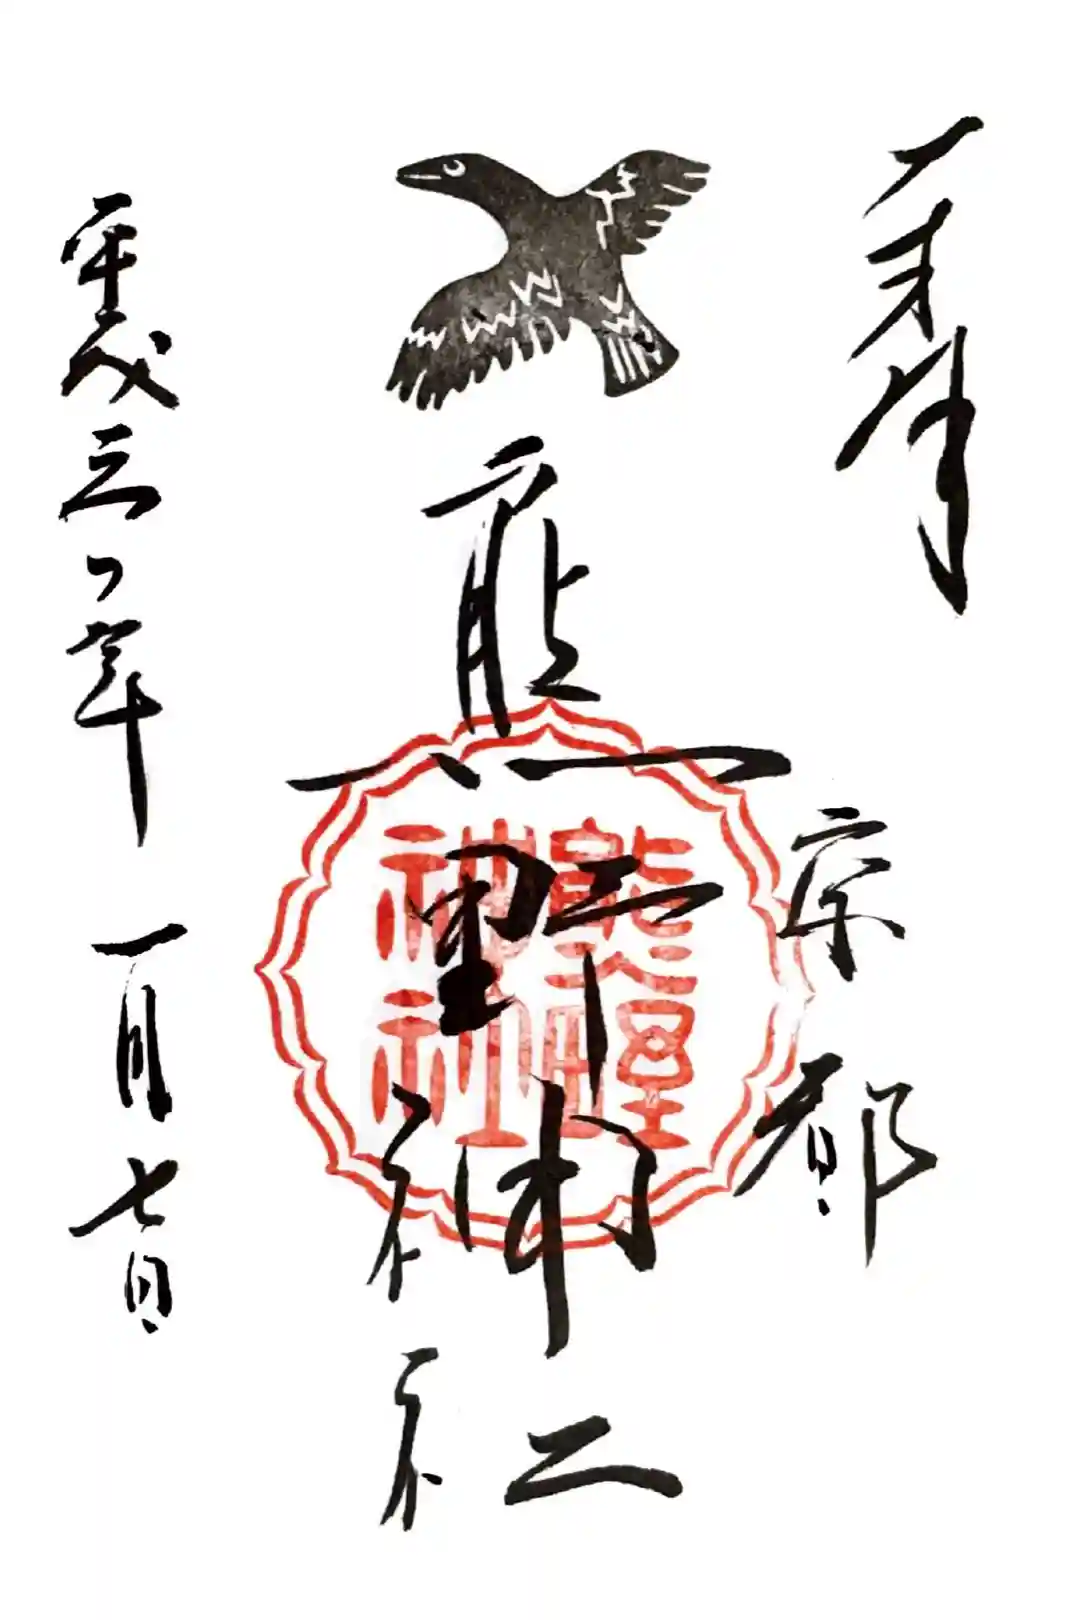 奉拝
京都
熊野神社
熊野
神社
平成三〇年 一月七日